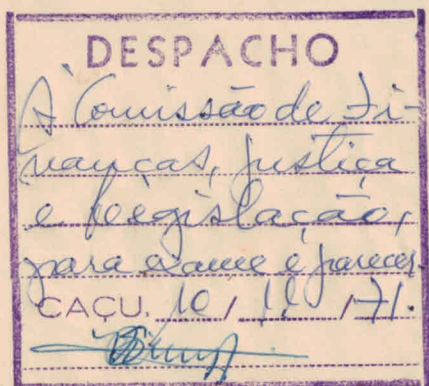 DESPACHO
À Comissão de Fi-
nanças, justiça
e Legislação,
para exame e parecer.
CAÇU. 10 / 11 / 71.